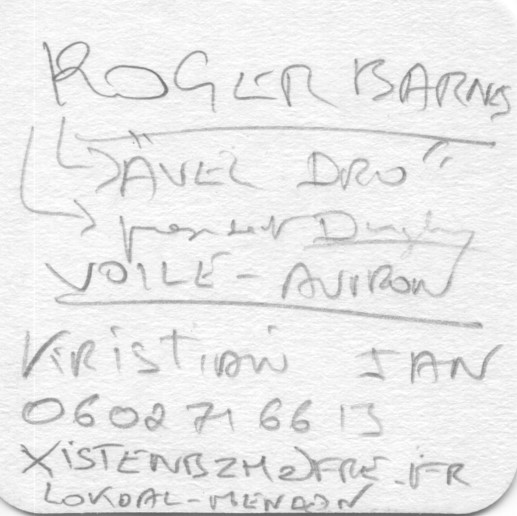 ROGER BARNES
"AVEL DRO"
Dinghy
VOILE - AVIRON
KRISTIAN JAN
06 02 71 66 13
LOKOAL-MENDON